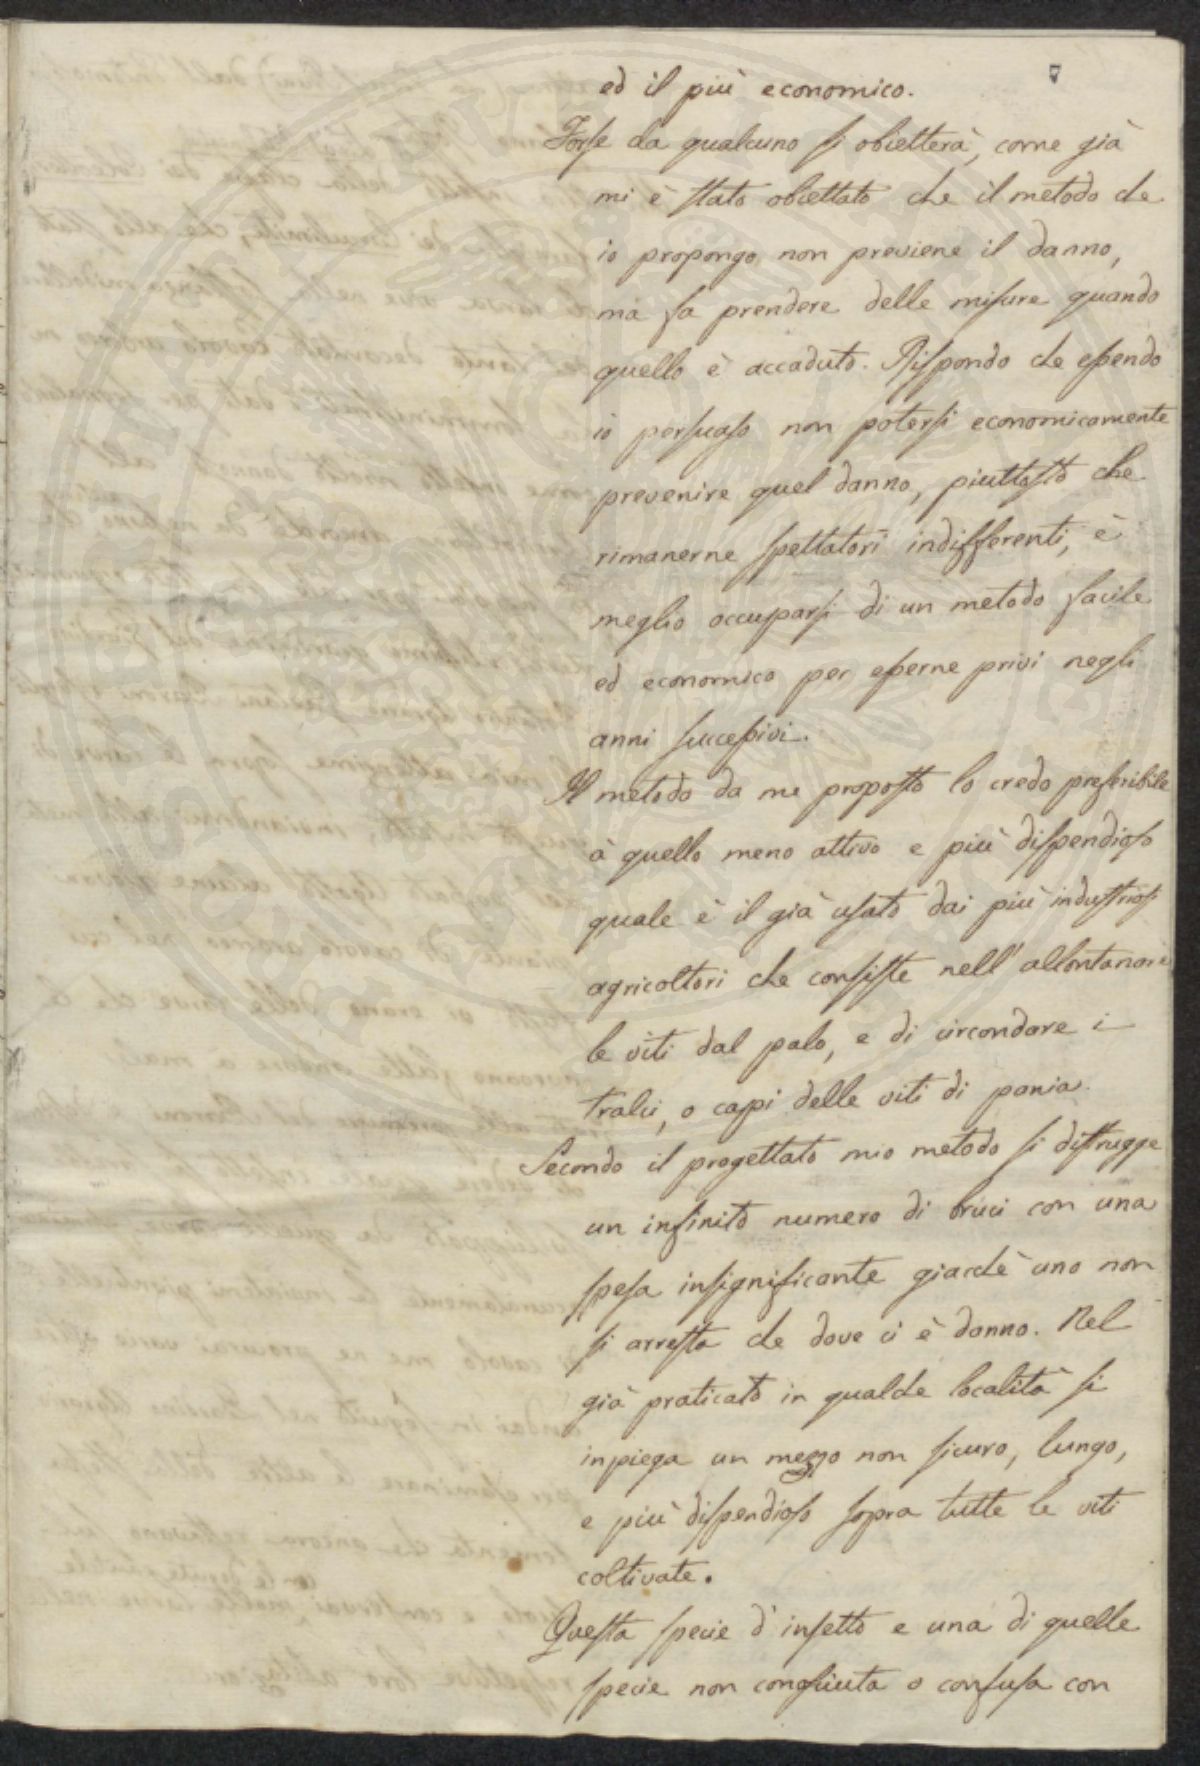 ed il più economico.
Forse da qualcuno si obietterà, come già
mi è stato obiettato che il metodo che
io propongo non previene il danno,
ma fa prendere delle misure quando
quello è accaduto. Rispondo che essendo
io persuaso non potersi economicamente
prevenire quel danno, piuttosto che
rimanerne spettatori indifferenti, è
meglio occuparsi di un metodo facile
ed economico per esserne privi negli
anni successivi.
Il metodo da me proposto lo credo preferibile
à quello meno attivo e più dispendioso
quale è il già usato dai più industriosi
agricoltori che consiste nell' allontanare
le viti dal palo, e di circondare i
tralci, o capi delle viti di pania.
Secondo il progettato mio metodo si distrugge
un infinito numero di bruci con una
spesa insignificante giacchè uno non
si arresta che dove ci è danno. Nel
già praticato in qualche località si
inpiega un mezzo non sicuro, lungo,
e più dispendioso sopra tutte le viti
coltivate.
Questa specie d' insetto e una di quelle
specie non conosciuta o confusa con